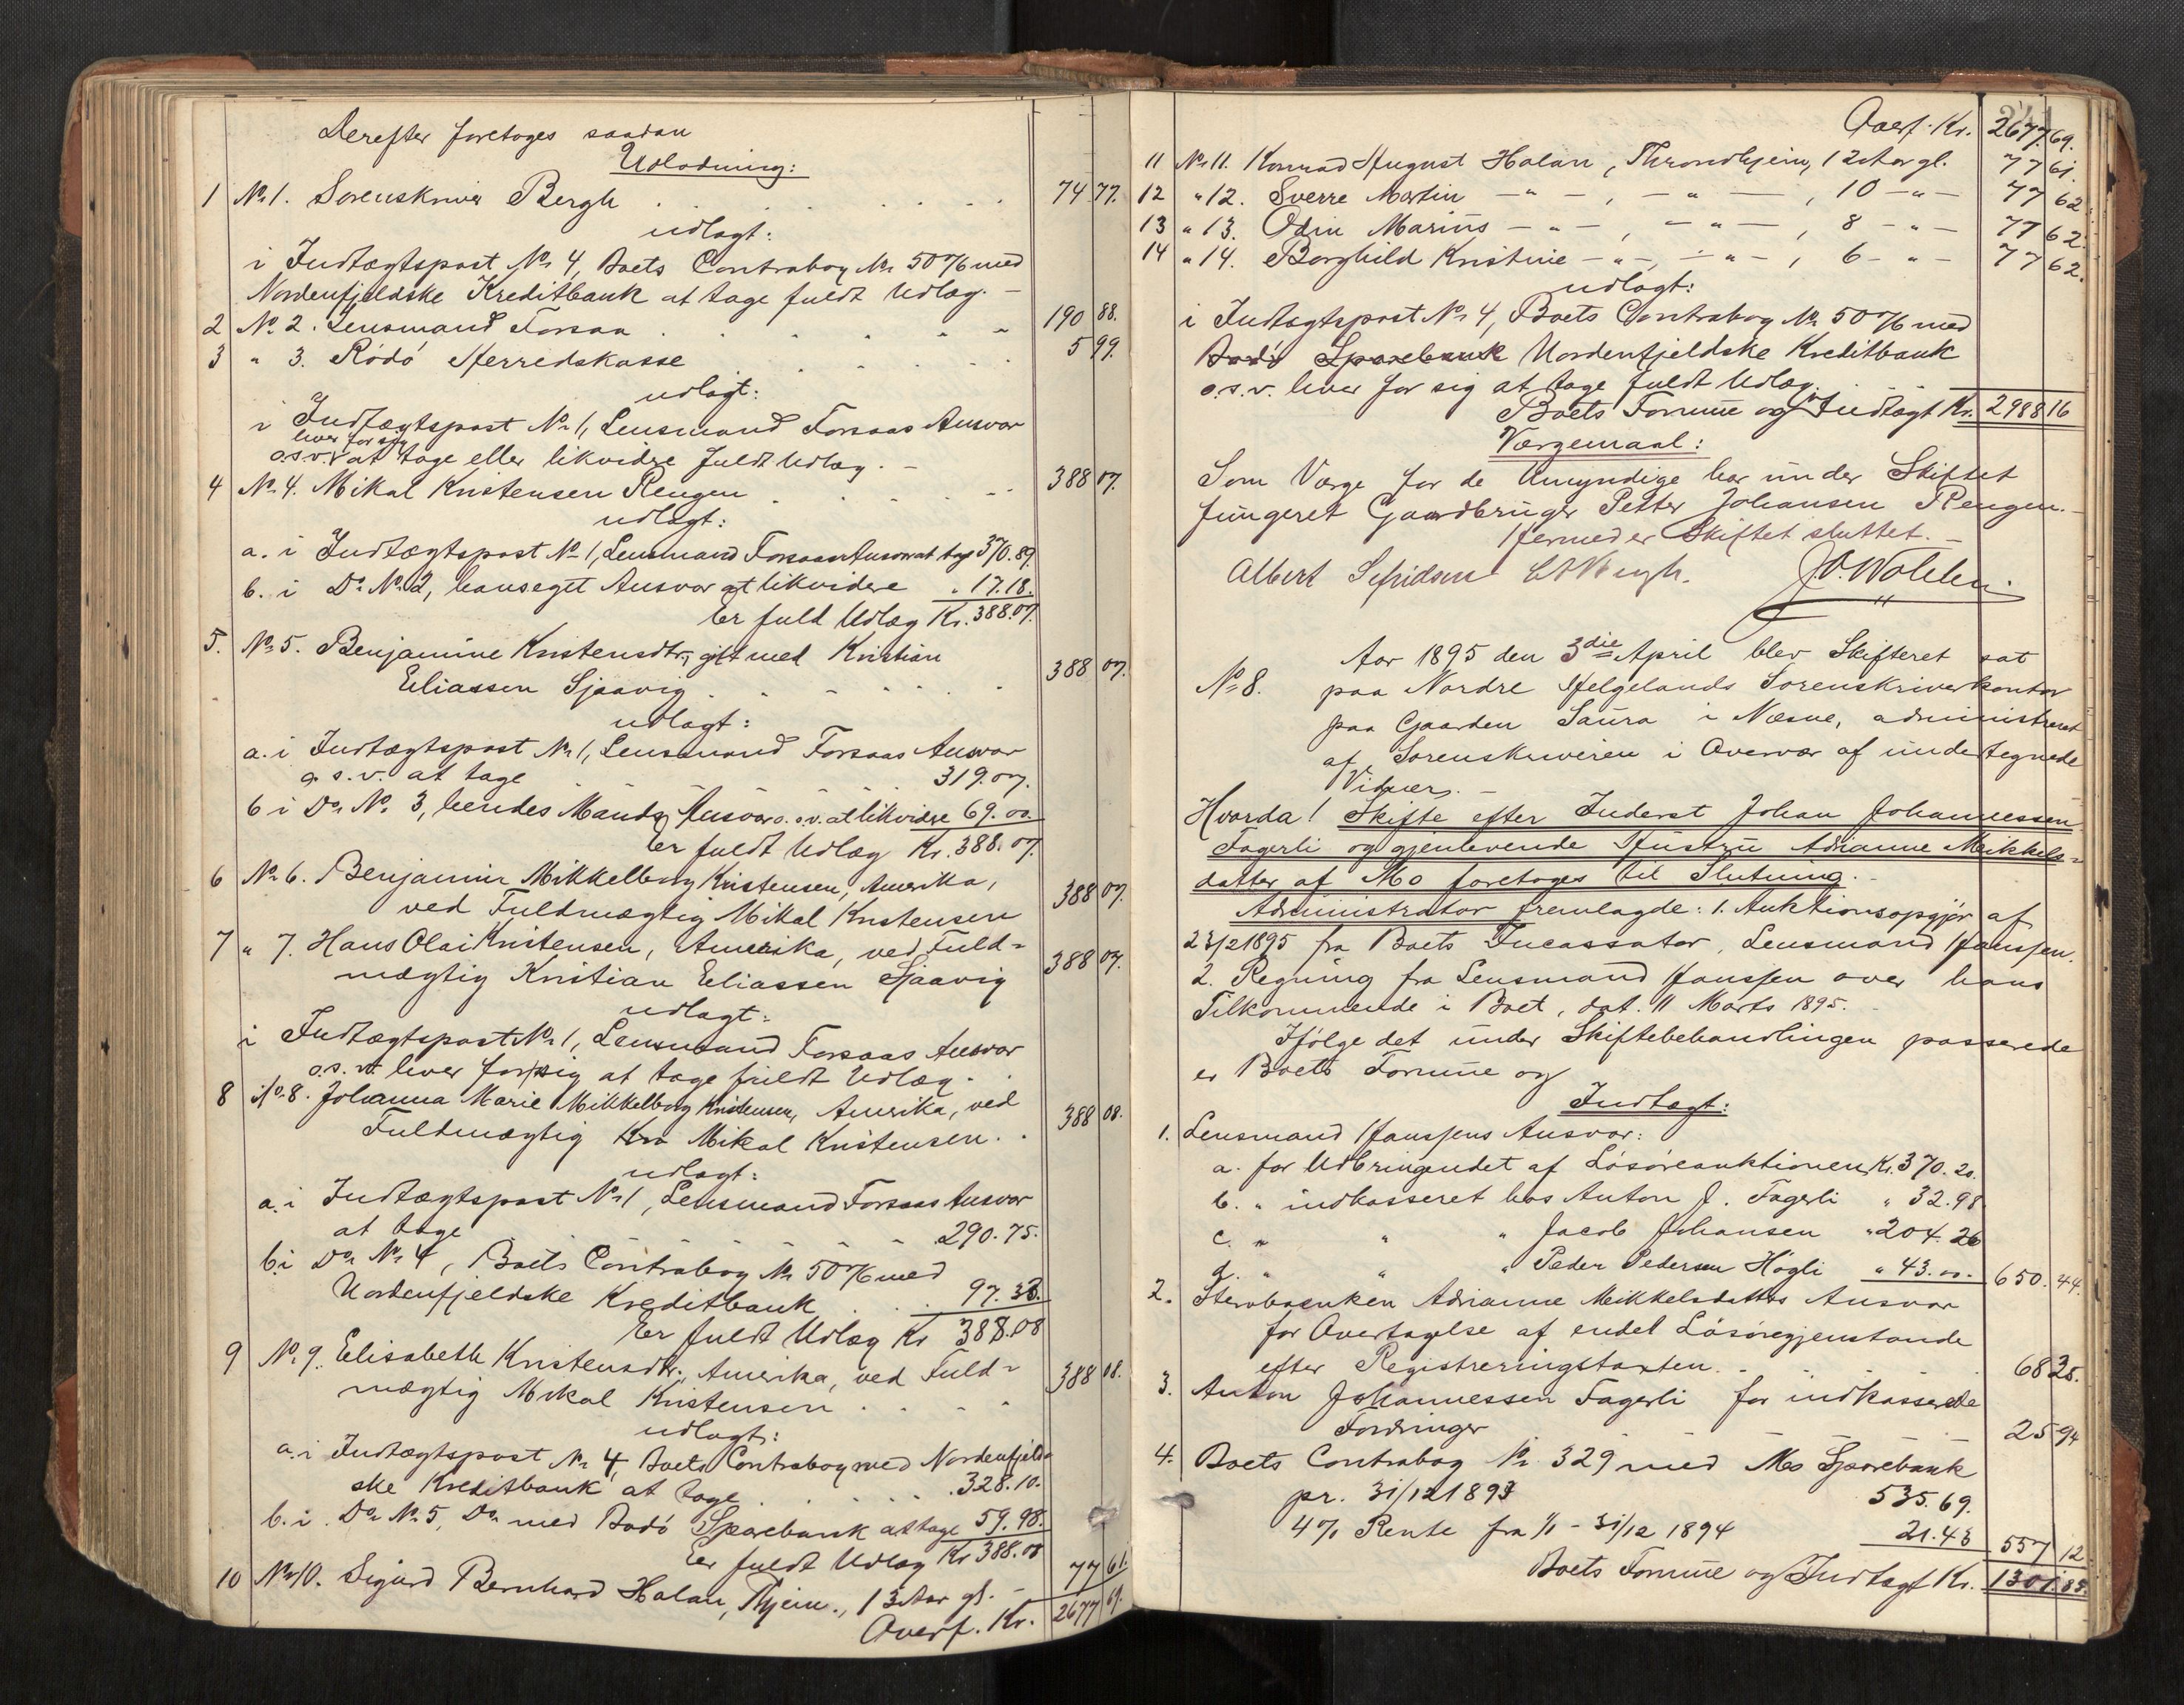 Derefter foretoges saadan
Udlodning:
1 No 1. Sorenskriver Bergh . . . . . . . 74 77.
udlagt:
i Indtægtspost No 4, Boets Contrabog No 5076 med
Nordenfjeldske Kreditbank at tage fuldt Udlæg. –
2 No 2. Lensmand Forsaa . . . . . . 190 88.
3 " 3. Rödö Herredskasse . . . . . . 5 99.
udlagt:
i Indtægtspost No 1, Lensmand Forsaas Ansvar
hver for sig
o.s.v. at tage eller likvidre fuldt Udlæg. –
4 No 4. Mikal Kristensen Rengen . . . . . . 388 07.
udlagt:
a. i Indtægtspost No 1, Lensmand Forsaas Ansvar at tage 370.89.
b. i Do No 2, hans eget Ansvar at likvidere " 17.18.
Er fuld Udlæg Kr. 388.07.
5. No 5. Benjamine Kristensdtr., gift med Kristian
Eliassen Sjaavig . . . . . . 388 07.
udlagt:
a. i Indtægtspost No 1, Lensmand Forsaas Ansvar
o. s. v. at tage 319.07.
b i Do No. 3, hendes Mands Ansvar o.s.v. at likvidre 69.00.
Er fuldt Udlæg Kr. 388.07.
6 No 6. Benjamin Mikkelborg Kristensen, Amerika,
ved Fuldmægtig Mikal Kristensen 388 07.
7 " 7. Hans Olai Kristensen, Amerika, ved Fuld-
mægtig Kristian Eliassen Sjaavig 388 07.
udlagt:
i Indtægtspost No 1, Lensmand Forsaas Ansvar
o.s.v. hver for sig at tage fuldt Udlæg. .
8 No 8. Johanna Marie Mikkelborg Kristensen, Amerika, ved
Fuldmægtig Kri Mikal Kristensen. . 388 08.
udlagt:
a. i Indtægtspost No 1, Lensmand Forsaas Ansvar
at tage 290.75.
b. i Do No 4, Boets Contrabog No 5076 med
Nordenfjeldske Kreditbank . . . 97.33.
Er fuldt Udlæg Kr 388.08
9 No 9. Elisabeth Kristensdtr., Amerika, ved Fuld-
mægtig Mikal Kristensen . . . . 388 08.
udlagt:
a. i Indtægtspost No 4, Boets Contrabog med Nordenfjeld-
ske Kreditbank at tage . . . . . 328.10.
b. i Do No 5, Do med Bodö Sparebank at tage 59.98.
Er fuldt Udlæg Kr 388.08
10 No 10. Sigurd Bernhard Halan, Thjem., 13 Aar gl. – 77 61.
Overf. Kr. 2677 69.
Overf. Kr. 2677.69.
11 No 11. Konrad August Halan, Throndhjem, 12 Aar gl. 77 61.
12 " 12. Sverre Martin – " – , – " – , 10 – " – 77 62
13 " 13. Odin Marius – " – , – " – , 8 – " – 77 62.
14 " 14. Borghild Kristine – " – , – " – , 6 – " – 77 62.
udlagt:
i Indtægtspost No 4, Boets Contrabog No 5076 med
Bodö Sparebank Nordenfjeldske Kreditbank
o. s. v. hver for sig at tage fuldt Udlæg. . . .
Boets Formue og Indtægt Kr. 2988 16
Værgemaal:
Som Værge for de Umyndige har under Skiftet
fungeret Gaardbruger Petter Johansen Rengen.
Hermed er Skiftet sluttet. –
Albert Sefridsen
Aar 1895 den 3die April blev Skifteret sat
No 8. paa Nordre Helgelands Sorenskriverkontor
paa Gaarden Saura i Næsne, administreret
af Sorenskriveren i Overvær af undertegnede
Vidner. –
Hvorda! Skifte efter Inderst Johan Johannessen
Fagerli og gjenlevende Hustru Adrianne Meikkels-
datter af Mo foretoges til Slutning. –
Administrator fremlagde: 1. Auktionsopgjør af
23/2 1895 fra Boets Incassator, Lensmand Hanssen.
2. Regning fra Lensmand Hanssen over hans
Tilkommende i Boet, dat. 11 Marts 1895.
Ifölge det under Skiftebehandlingen passerede
er Boets Formue og
Indtægt:
1. Lensmand Hanssens Ansvar:
a. for Udbringendet af Lösöreauktionen Kr. 370.20.
b. " indkasseret hos Anton J. Fagerli " 32.98
c. " " " Jacob Johansen " 204.26
d. " " " Peder Pedersen Högli " 43.00. 650.44.
2. Stervboenken Adrianne Meikkelsdatters Ansvar
for Overtagelse af endel Lösöregjenstande
efter Registreringstaxten. . . . . 68 35.
3. Anton Johannessen Fagerli for indkasserede
Fordringer 25 94
4. Boets Contrabog No 329 med Mo Sparebank
pr. 31/12 1893 535.69.
4% Rente fra 1/1 – 31/12 1894 21.43 557 12.
Boets Formue og Indtægt Kr. 1301.85.